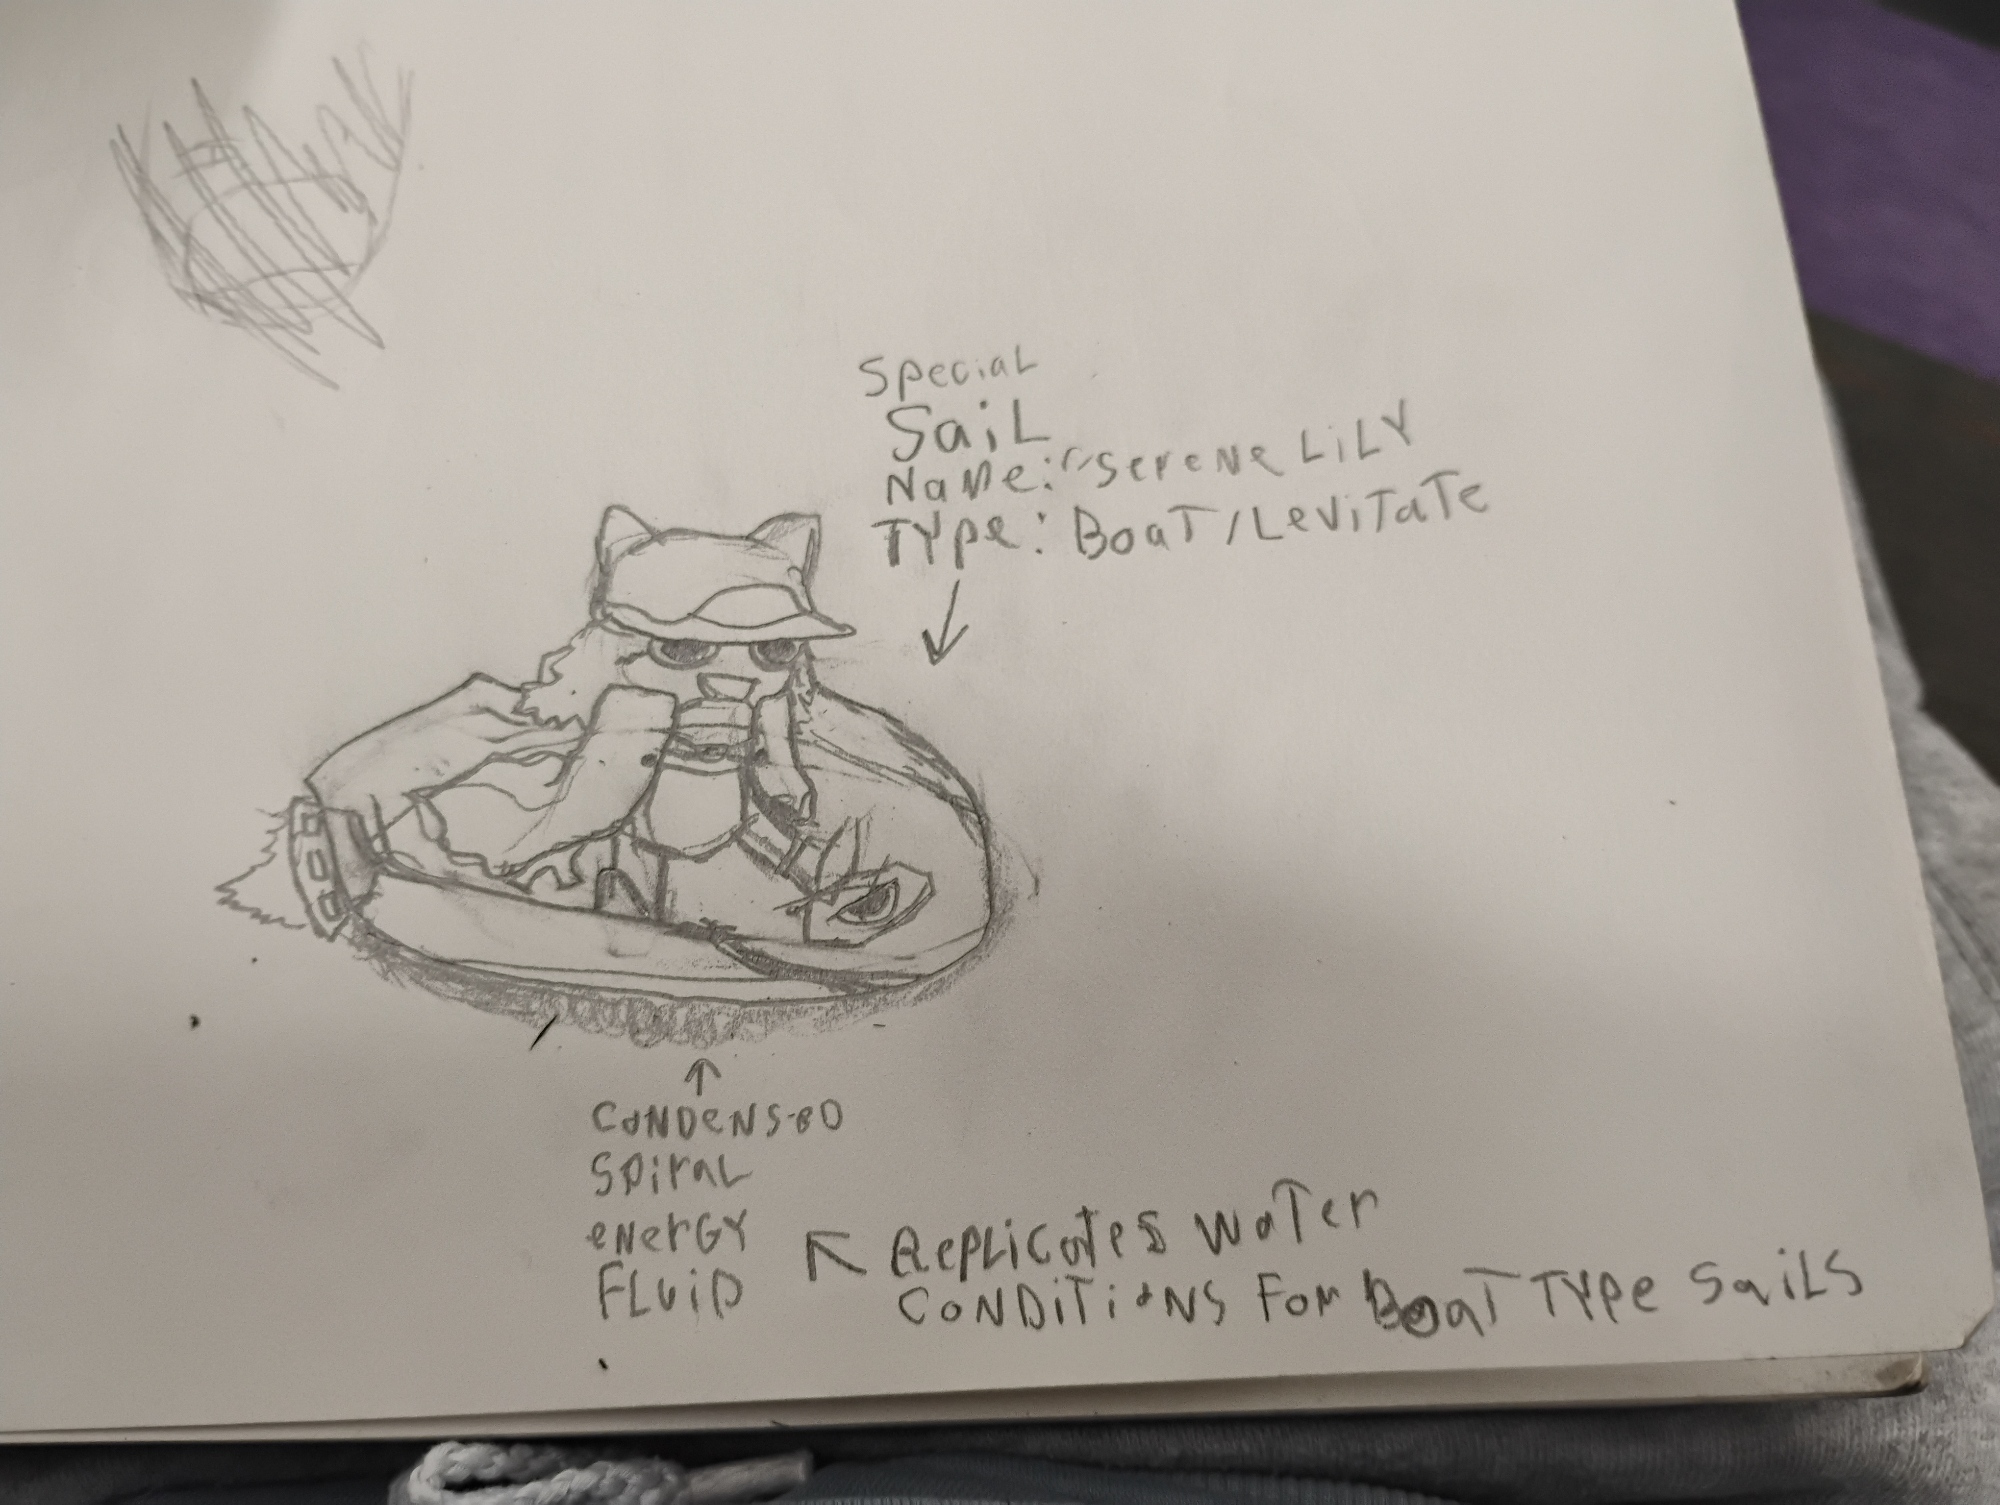 Special
Sail
Name: "Serene Lily
Type: Boat/Levitate
Condensed
Spiral
energy
Fluid
Replicates water
conditions for Boat Type Sails